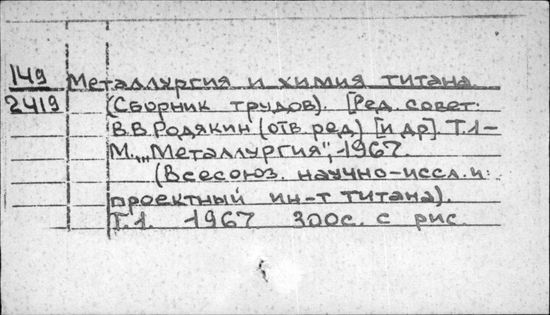 149 Металлургия и химия титана
2419 (Сборник трудов). [Ред. совет:
В.В.Родякин (отв. ред) [и др]. Т.1-
М., „Металлургия", 1967.
(Всесоюз. научно-иссл. и
проектный ин-т титана).
Т.1. 1967 300с. с рис.